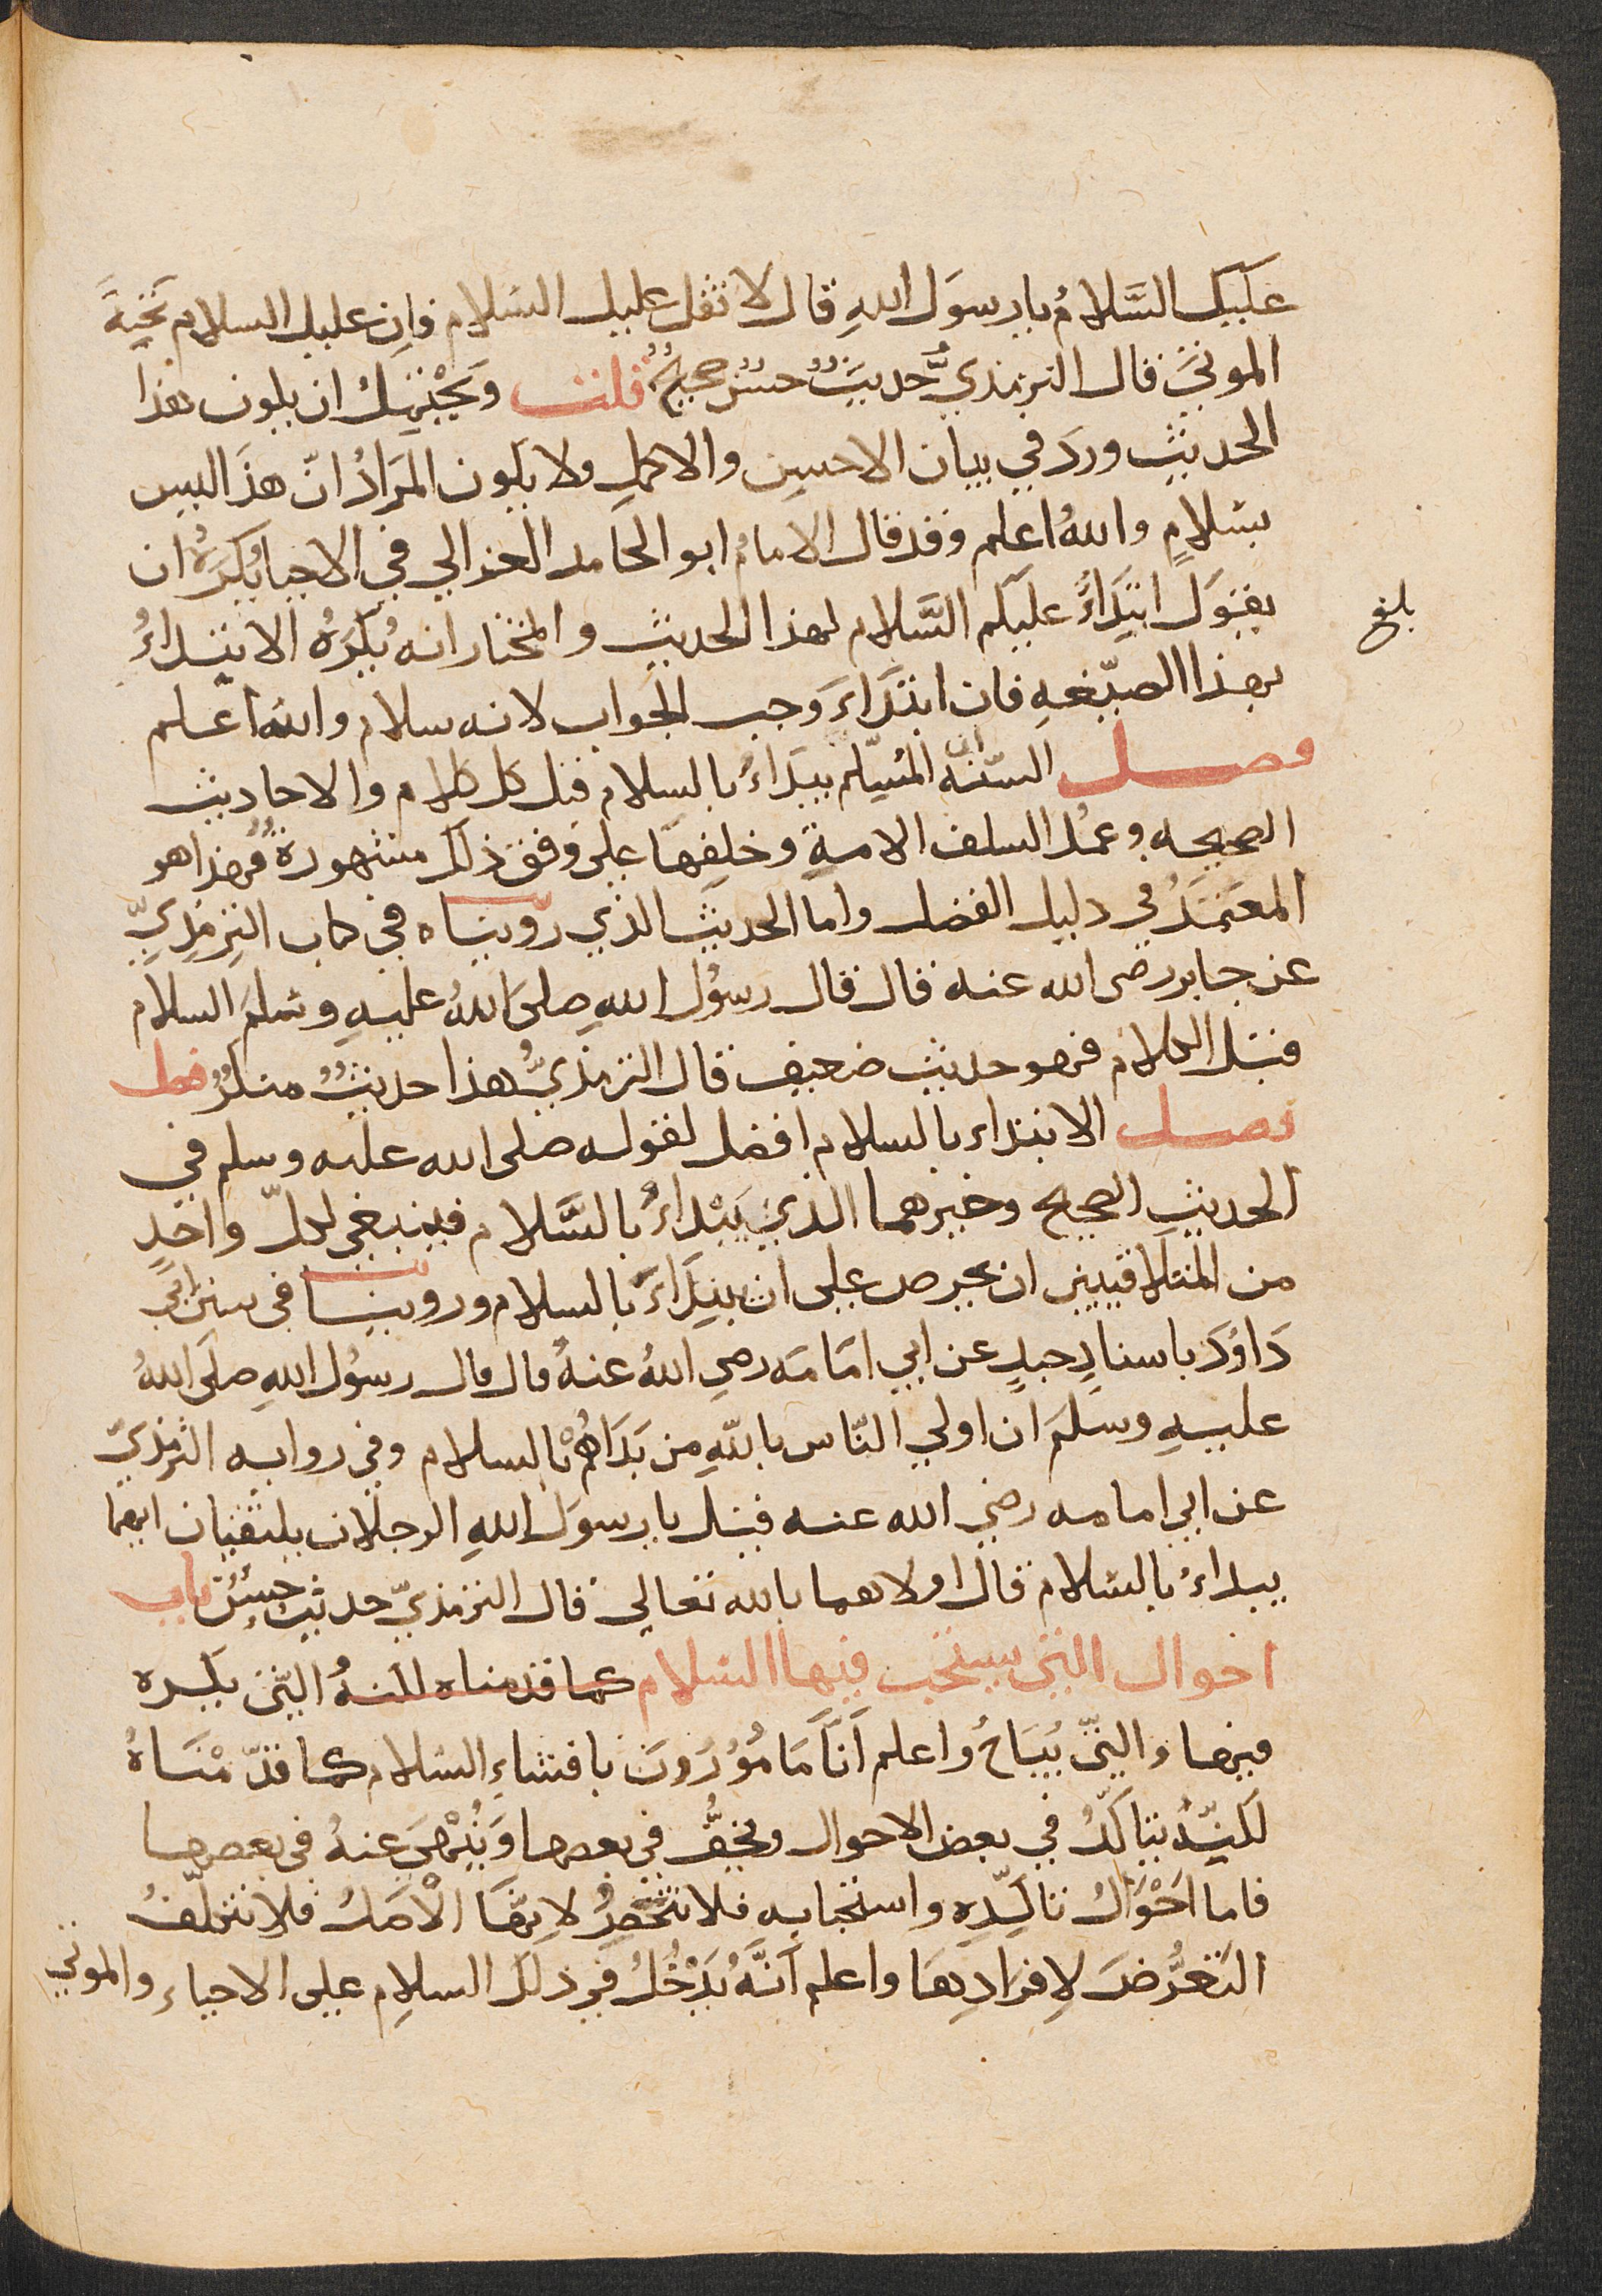 عَلَيكَ السَّلامُ يا رسوَل اللهِ قال لا تقل عليك السّلام فان عليك السلام تحيةَ
الموتى قال الترمذيُّ حديثٌ حسنٌ صحيحٌ قلت ويحتمل ان يكون هذا
الحديث وردَ في بيان الاحسن والاكمل ولا يكون المرَادُ انّ هذَا ليس
بسَلامٍ واللهُ اعلم وقد قال الامام ابو الحامد الغزالي في الاحيا يُكرَهُ ان
يقوَل ابتدَاءً عليكم السَّلام لهذا الحديث والمختار انه يُكرَهُ الابتداءُ
بهذا الصيّغهِ فان ابتدَاءَ وجب الجواب لانه سلام والله اعلم
فصل السّنّه ان المسّلم يبدَاءُ بالسلام قبل كل كلام والاحاديث
الصحيحه وعمُل السلف الامةِ وخلِفهَا على وَفق ذلك مشهورةٌ فهذا هو
المعتمَدُ في دليل الفضل واما الحديث الذي رويناه في كتاب الترمِذيِّ
عن جابر رضى الله عنه قال قال رسوُل اللهِ صلىَ اللهُ عليهِ وسَلمَ السلام
قبل الكلام فهو حديث ضعيف قال الترمذيُّ هذا حديثٌ منكرٌ فصل
فصل الابتداء بالسلام افضل لقوله صلى الله عليه وسلم في
الحديثِ الصحيح وخيرهما الذي يَبْداءُ بالسَّلام فينبغي لكلّ واحَدٍ
من المتلاقيين ان يحرص على ان يبتدَاءَ بالسلام وروينا في سنن ابي
دَاوُدَ باسنادٍ جيدٍ عن ابي امَامَه رضيِ اللهُ عنهُ قال قال رسوُل اللهِ صلىَ اللهُ
عليهِ وسَلَم ان اولي النّاس باللهِ من بَدَاهُمْ بالسلام وفي روايه الترمذيّ
عن ابي امامه رضي الله عنه قيل يا رسوَل اللهِ الرجلان يلتقيان ايهما
يبداءُ بالسّلام قال اولاهما بالله تعالى قال الترمذيّ حديث حسنٌ باب
احوال التي يستحب فيها السّلام كما قدمناه لكنهُ التي يكره
فيها والتيّ يُبَاحُ واعلم اَنّا مَامُوُرُونَ بافشاءِ السّلام كما قدّمْنَاهُ
لكنّهُ يتاكّدُ في بعض الاحوال ويخفُّ في بعضها وَيُنْهىَ عنهُ في بعضها
فاما احَوَال تاكّدِهِ واستحبابه فلا تنْحَصِرُ لانِهَّا الْاصَلُ فلا نتكلّفُ
التَعرُّضَ لاِفرَادِهَا واعلم اَنَّهُ يَدْخُلُ في ذلك السلامِ على الاحياء والموتى
بلغ